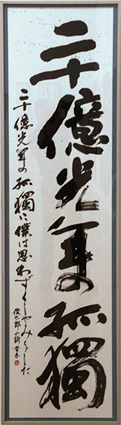 二十億光年の孤獨
二十億光年の孤獨に僕は思わずくしゃみをした
俊太郎の詩